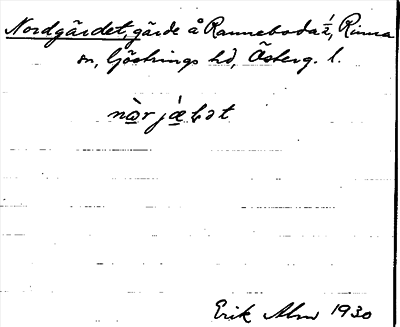 Nordgärdet, gärde å Ranneboda 1/2, Rinna
sn, Göstrings hd, Österg. l.
no̱̊̀rjǽ̱ɽət
Erik Alm 1930